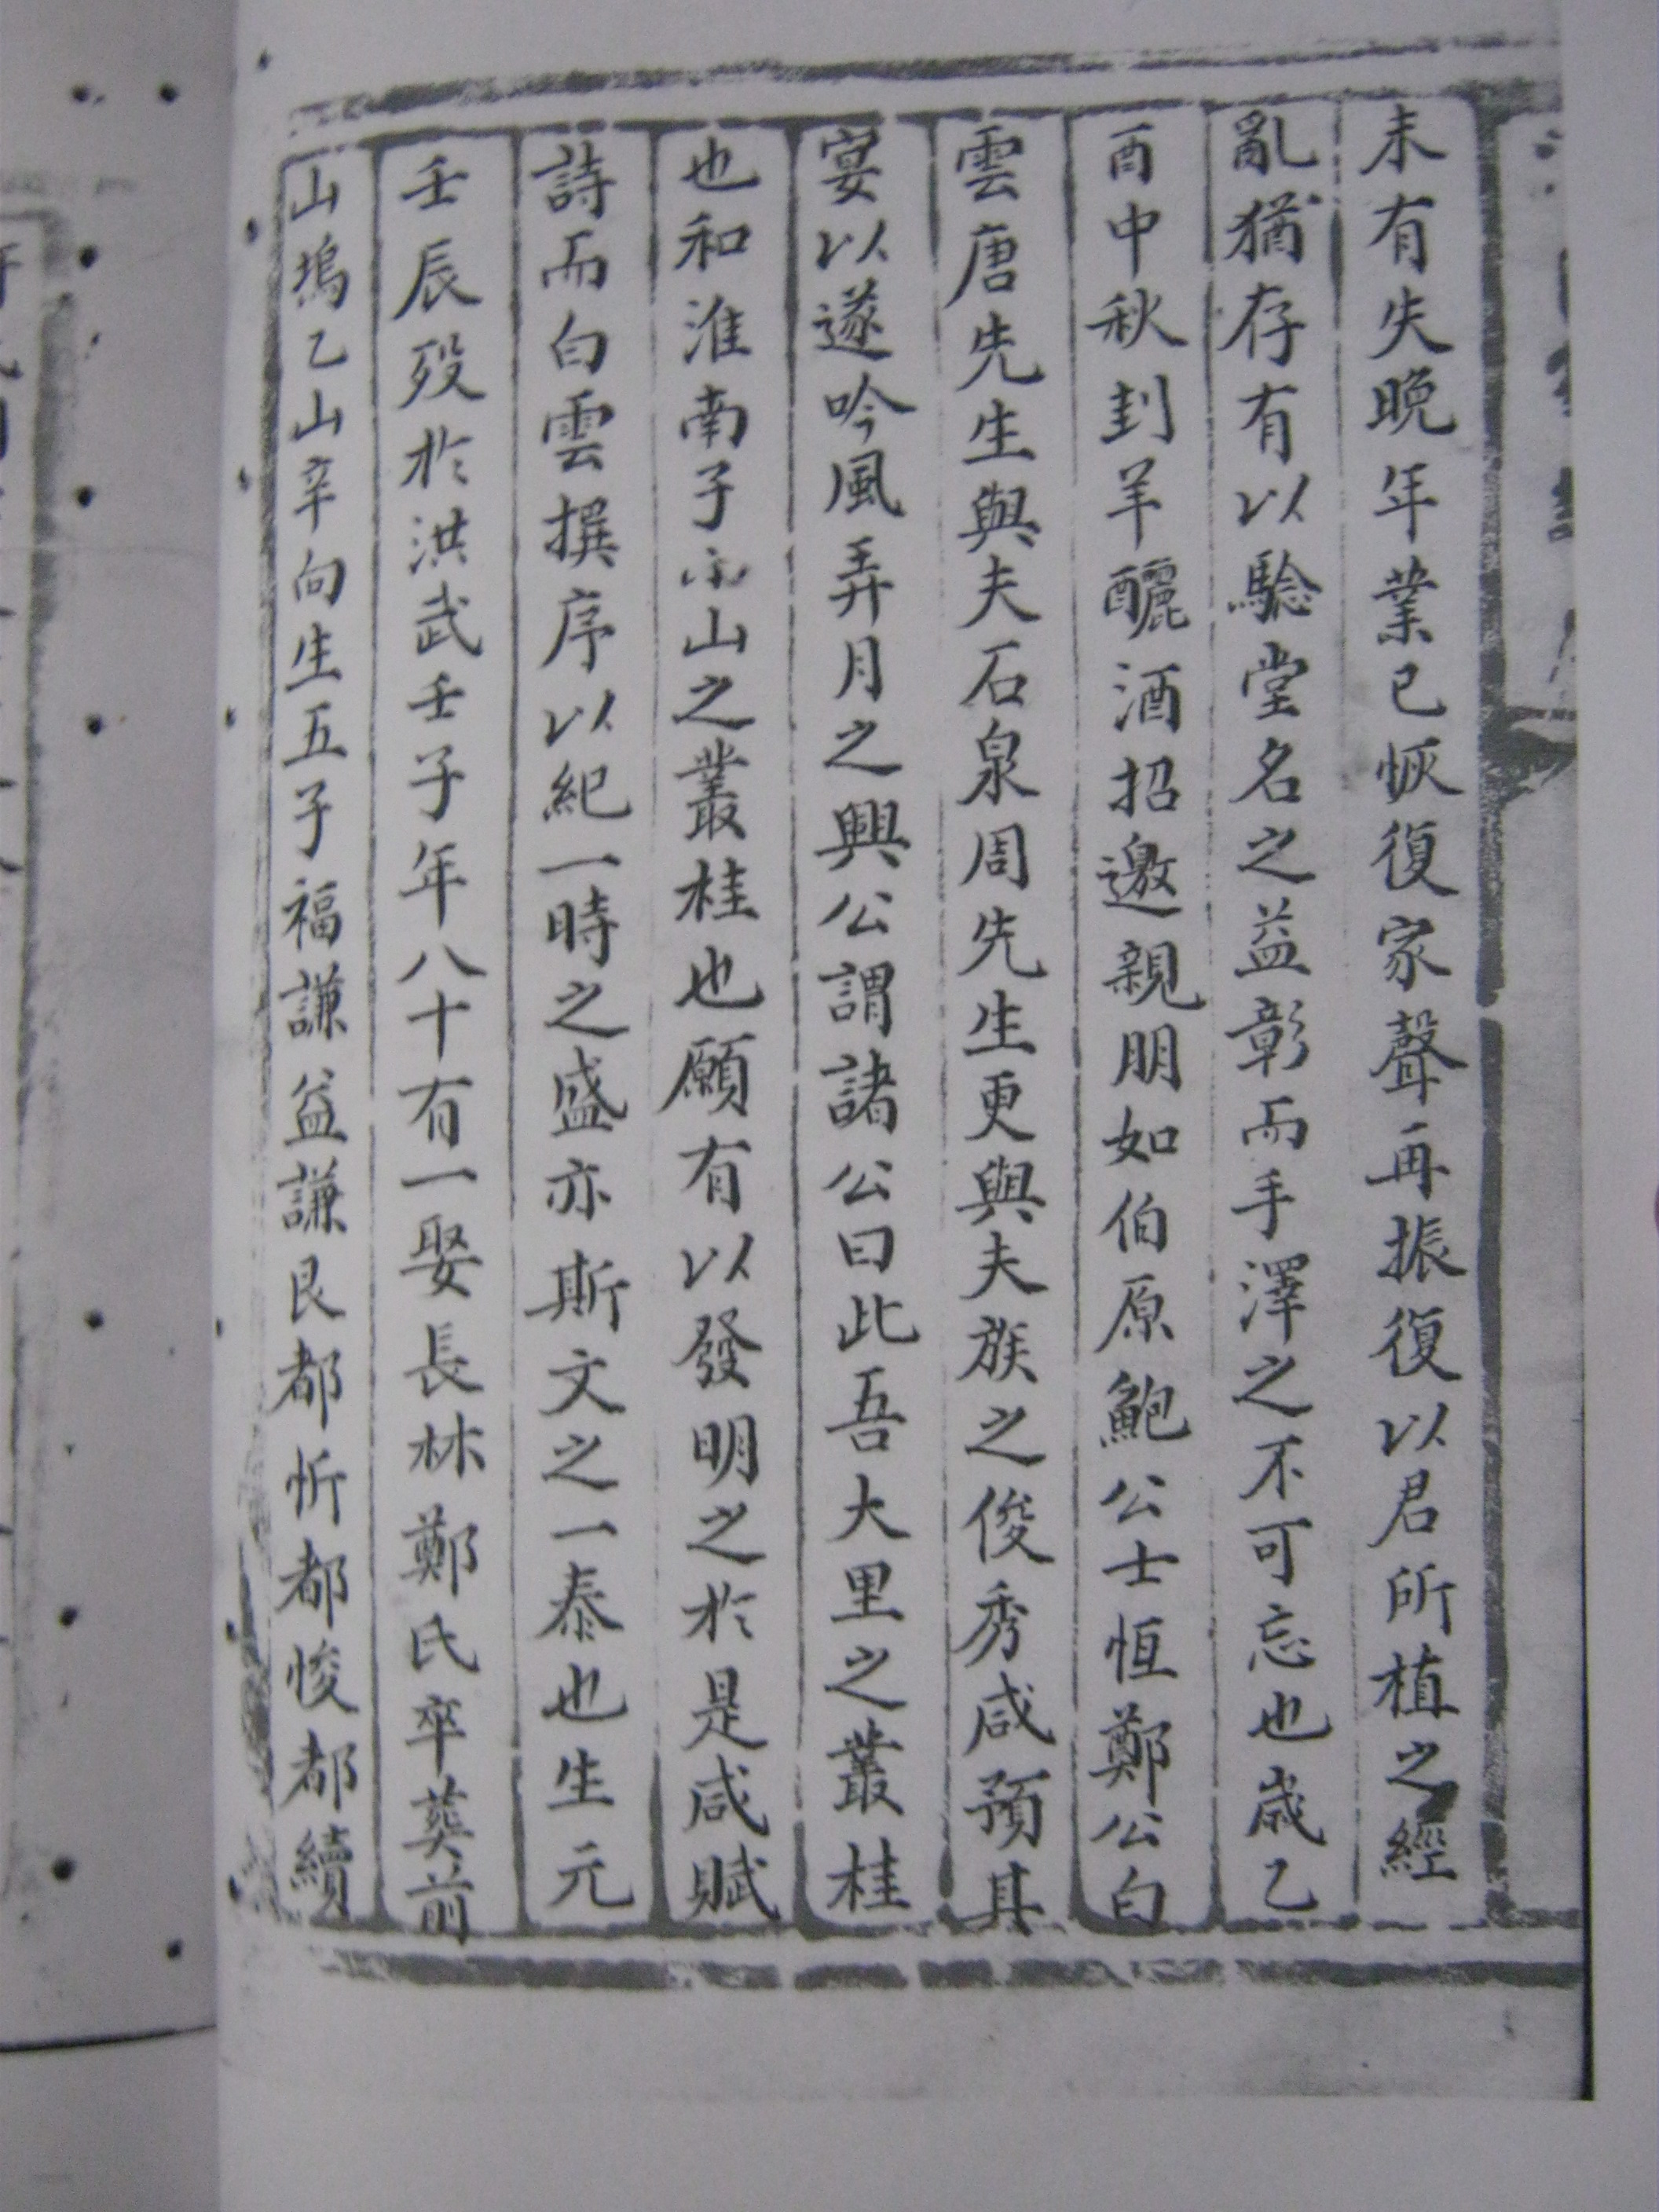 未有失晚年業已恢復家聲再振復以君所植之經
亂猶存有以驗堂名之益彰而手澤之不可忘也歲乙
酉中秋封羊釃酒招邀親朋如伯原鮑公士恒鄭公白
雲唐先生與夫石泉周先生更與夫族之俊秀咸預其
宴以遂吟風弄月之興公謂諸公曰此吾大里之叢桂
也和淮南子小山之叢桂也願有以發明之於是咸賦
詩而白雲撰序以紀一時之盛亦斯文之一泰也生元
壬辰歿於洪武壬子年八十有一娶長林鄭氏卒葬前
山塢乙山辛向生五子福謙益謙艮都忻都悛都續